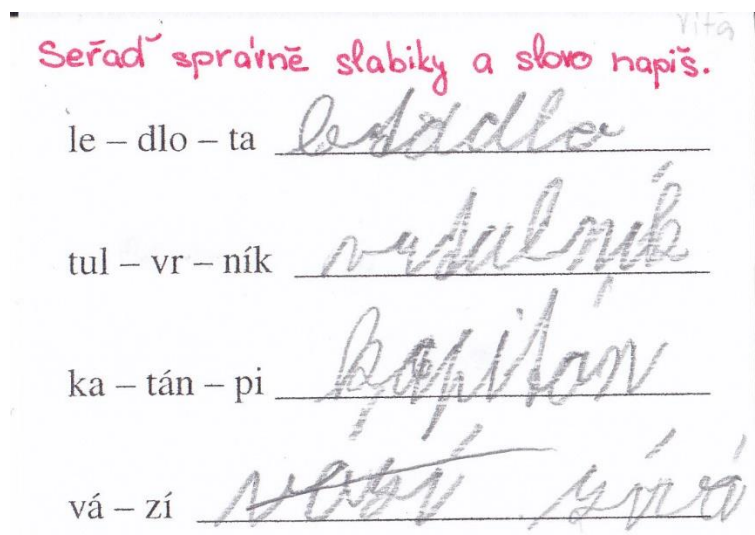 Víta
Seřaď správně slabiky a slovo napiš.
le – dlo – ta letadlo
tul – vr – ník vrtulník
ka – tán – pi kapitán
vá – zí vází zívá